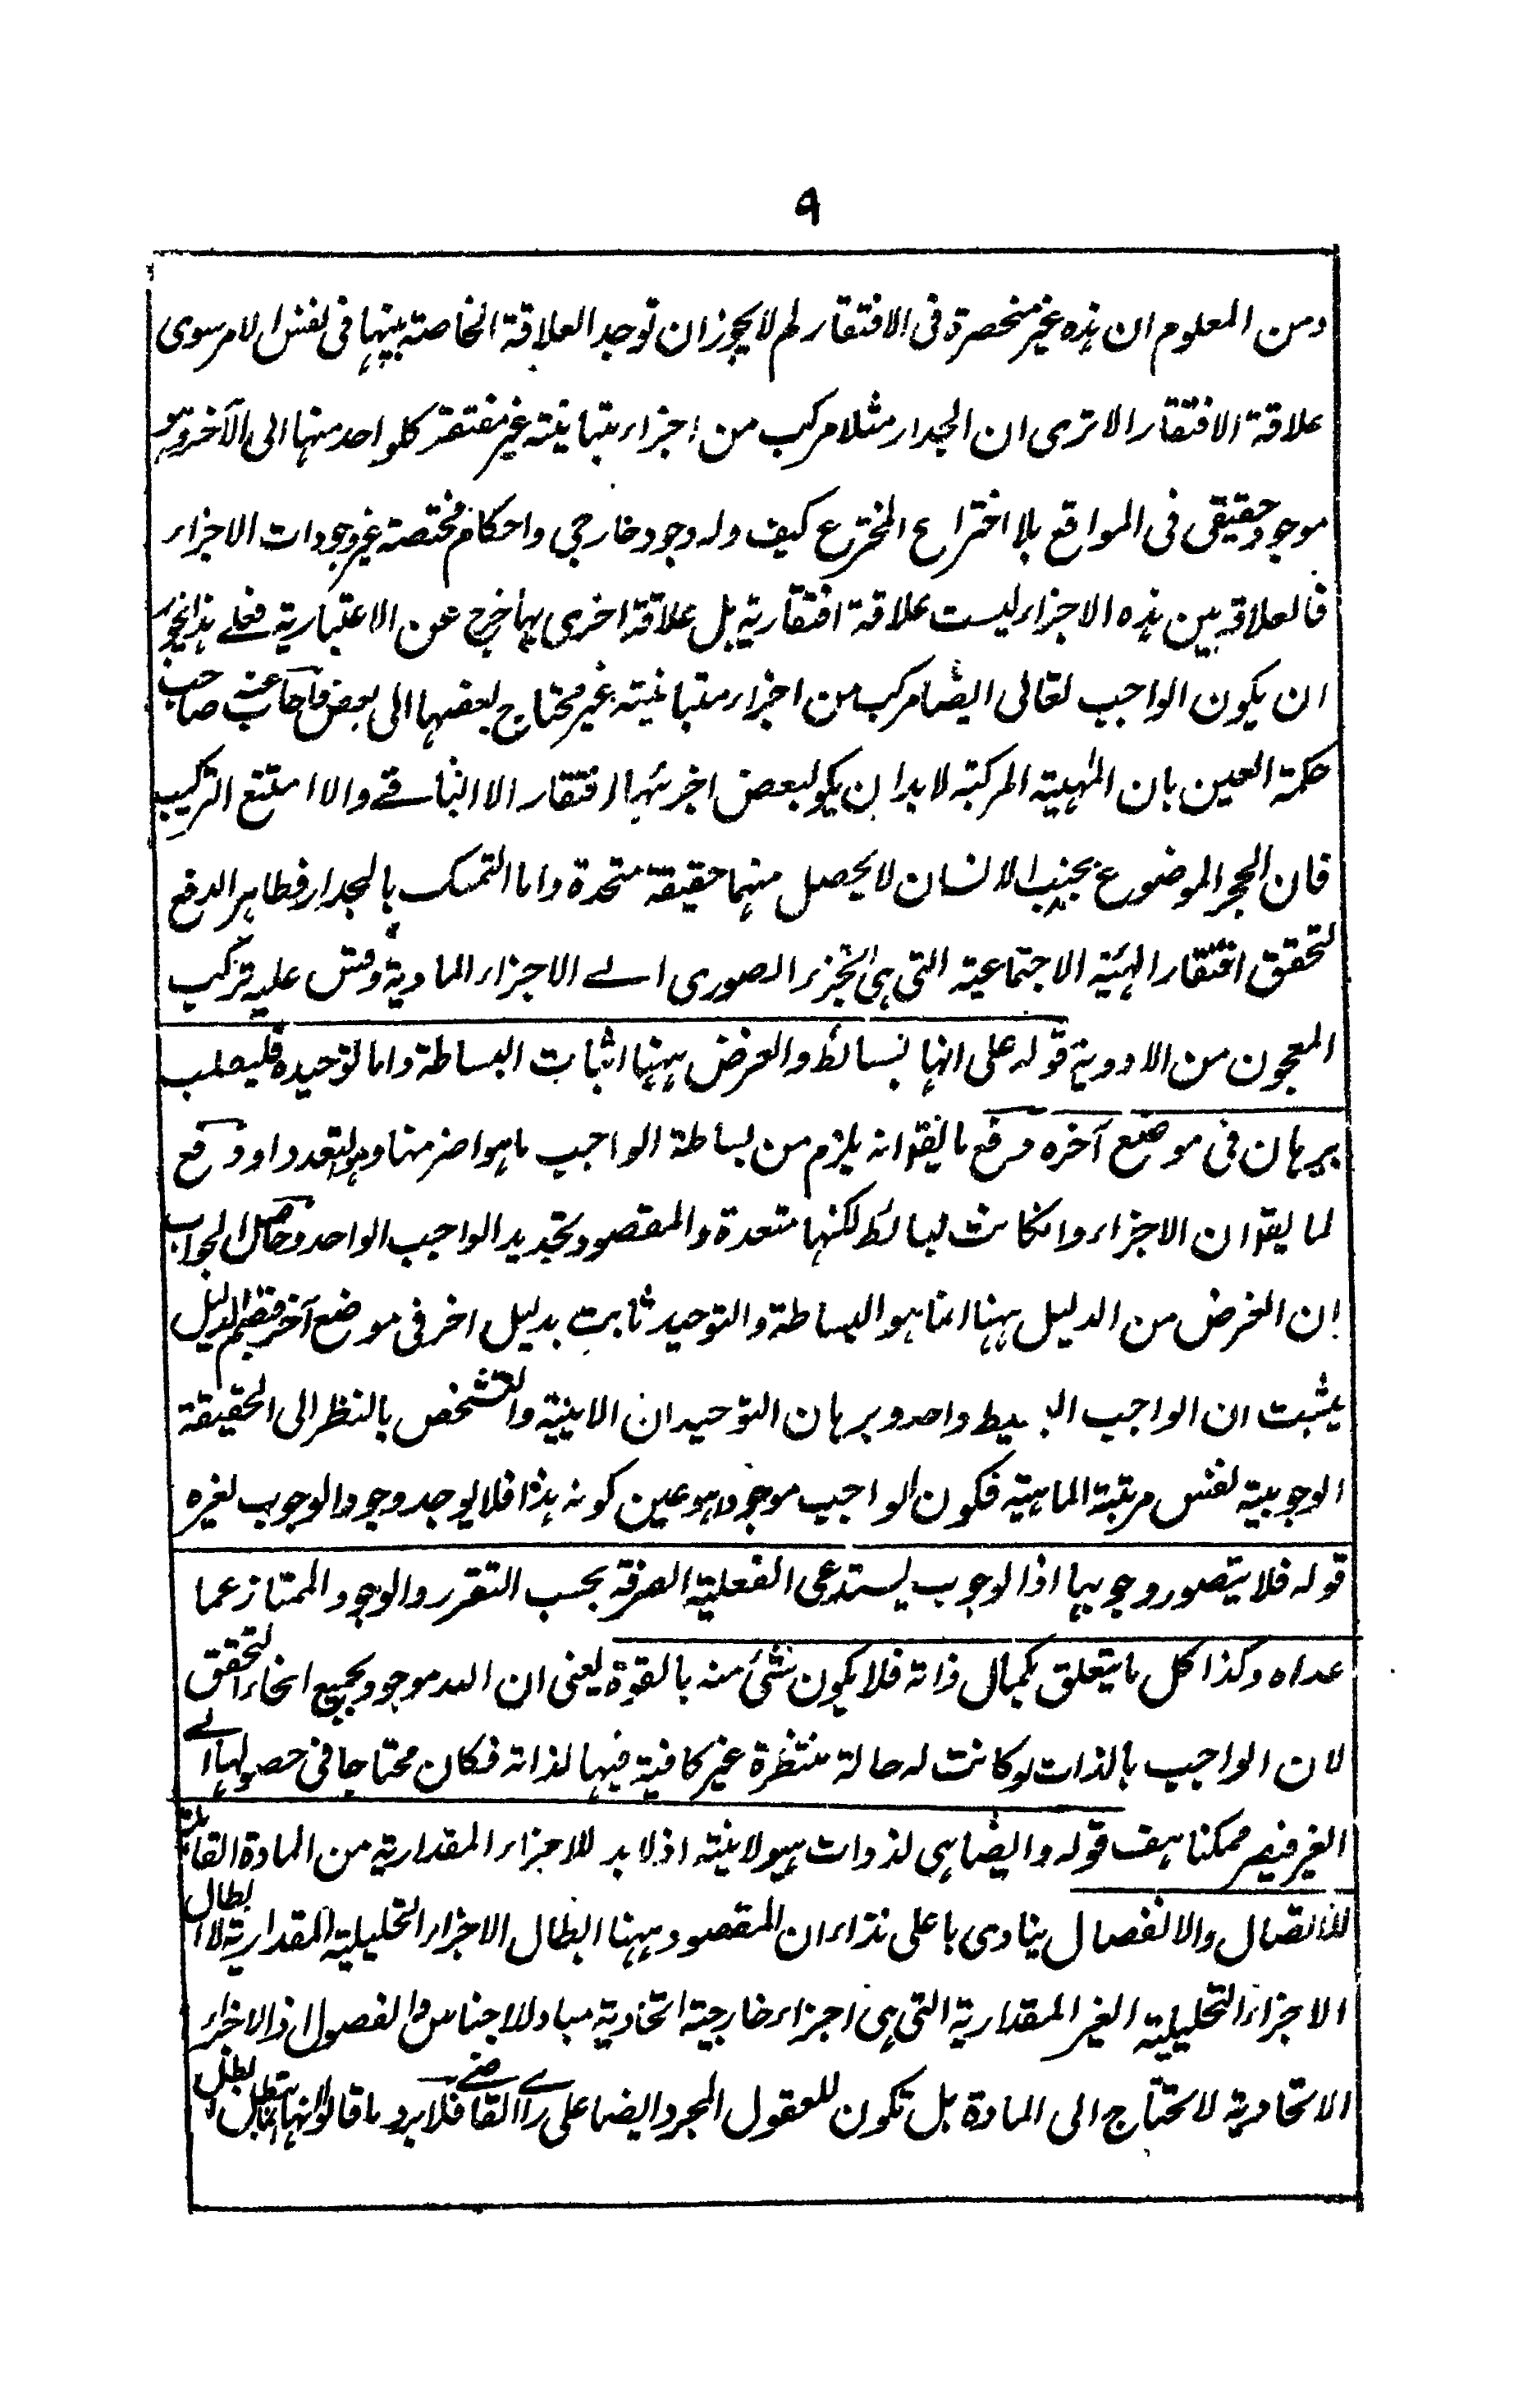 ٩
ومن المعلوم ان هذه غير منحصرة فى الافتقار لم لا يجوز ان توجد العلاقة الخاصة بينها فى نفس الامر سوى
علاقة الافتقار الا ترى ان الجدار مثلا مركب من اجزاء متباينة غير مفتقر كلواحد منها الى الآخر وهو
موجود حقيقى فى الواقع بلا اختراع المخترع كيف وله وجود خارجى واحكام مختصة غير وجودات الاجزاء
فالعلاقة بين هذه الاجزاء ليست علاقة افتقارية بل علاقة اخرى بها خرج عن الاعتبارية فعلے هذا يجوز
ان يكون الواجب تعالى ايضا مركب من اجزاء متباينة غير محتاج بعضها الى بعض فاجاب عنه صاحب
حكمة العين بان المهية المركبة لابد ان يكو لبعض اجزئها افتقار الا الباقے والا امتنع التركيب
فان الحجر الموضوع بجنب الانسان لا يحصل منهما حقيقة متحدة واما التمسك بالجدار فظاهر الدفع
لتحقق افتقار الهئية الاجتماعية التى هى الجزء الصورى الے الاجزاء المادية وقس عليه تركب
المعجون من الادوية قوله على انها بسائط والغرض ههنا اثبات البساطة واما توحيده فليطلب
ببرهان فى موضع آخره دفع ما يقو انه يلزم من بساطة الواجب ما هو اضر منها وهو التعدد او دفع
لما يقو ان الاجزاء وانكانت بسائط لكنها متعدة والمقصود تحديد الواجب الواحد وحاصل الجواب
ان الغرض من الدليل ههنا انما هو البساطة والتوحيد ثابت بدليل اخر فى موضع آخر فبضم الدليل
يثبت ان الواجب البسيط واحد وبرهان التوحيد ان الاينية والتشخص بالنظر الى الحقيقة
الوجوبية نفس مرتبة الماهية فكون الواجب موجود هو عين كونه هذا فلا يوجد وجود الوجوب لغيره
قوله فلا يتصور وجوبها اذ الوجوب يستدعى الفعلية الصرفة بحسب التقرر والوجود الممتاز عما
عداه وكذا كل ما يتعلق بكمال ذاته فلا يكون شئ منه بالقوة يعنى ان الله موجود بجميع انحاء التحقق
لان الواجب بالذات لو كانت له حالة منتظرة غير كافية فيها لذاته فكان محتاجا فى حصولها الے
الغير فيصر ممكنا هف قوله وايضا هى لذوات هيولانية اذ لابد للاجزاء المقدارية من المادة القابلة
للاتصال والانفصال ينادى باعلى نداء ان المقصود ههنا ابطال الاجزاء التحليلية المقدارية لا ابطال
الاجزاء التحليلية الغير المقدارية التى هى اجزاء خارجية اتحادية مباد للاجناس والفصول اذ الاجزاء
الاتحادية لا تحتاج الى المادة بل تكون للعقول المجرد ايضا على راے القاضے فلا يرد ما قالوا انها